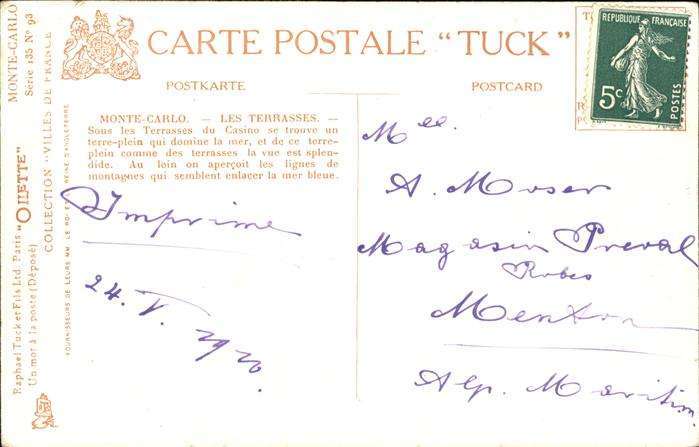 CARTE POSTALE "TUCK"
POSTKARTE
POSTCARD
RÉPUBLIQUE FRANÇAISE
5c
POSTES
MONTE-CARLO
Série 135 Nº 93
COLLECTION "VILLES DE FRANCE
"OILETTE"
Raphael Tuck et Fils Ltd: Paris
Un mot à la poste (Déposé)
FOURNISSEURS DE LEURS MM. LE ROI ET REINE D'ANGLETERRE
MONTE-CARLO. — LES TERRASSES. —
Sous les Terrasses du Casino se trouve un
terre-plein qui domine la mer, et de ce terre-
plein comme des terrasses la vue est splen-
dide. Au loin on aperçoit les lignes de
montagnes qui semblent enlacer la mer bleue.
Imprimé
24. V. 1920.
Mlle.
A. Moser
Magasin Preval
Robes
Menton
Alp. Maritim